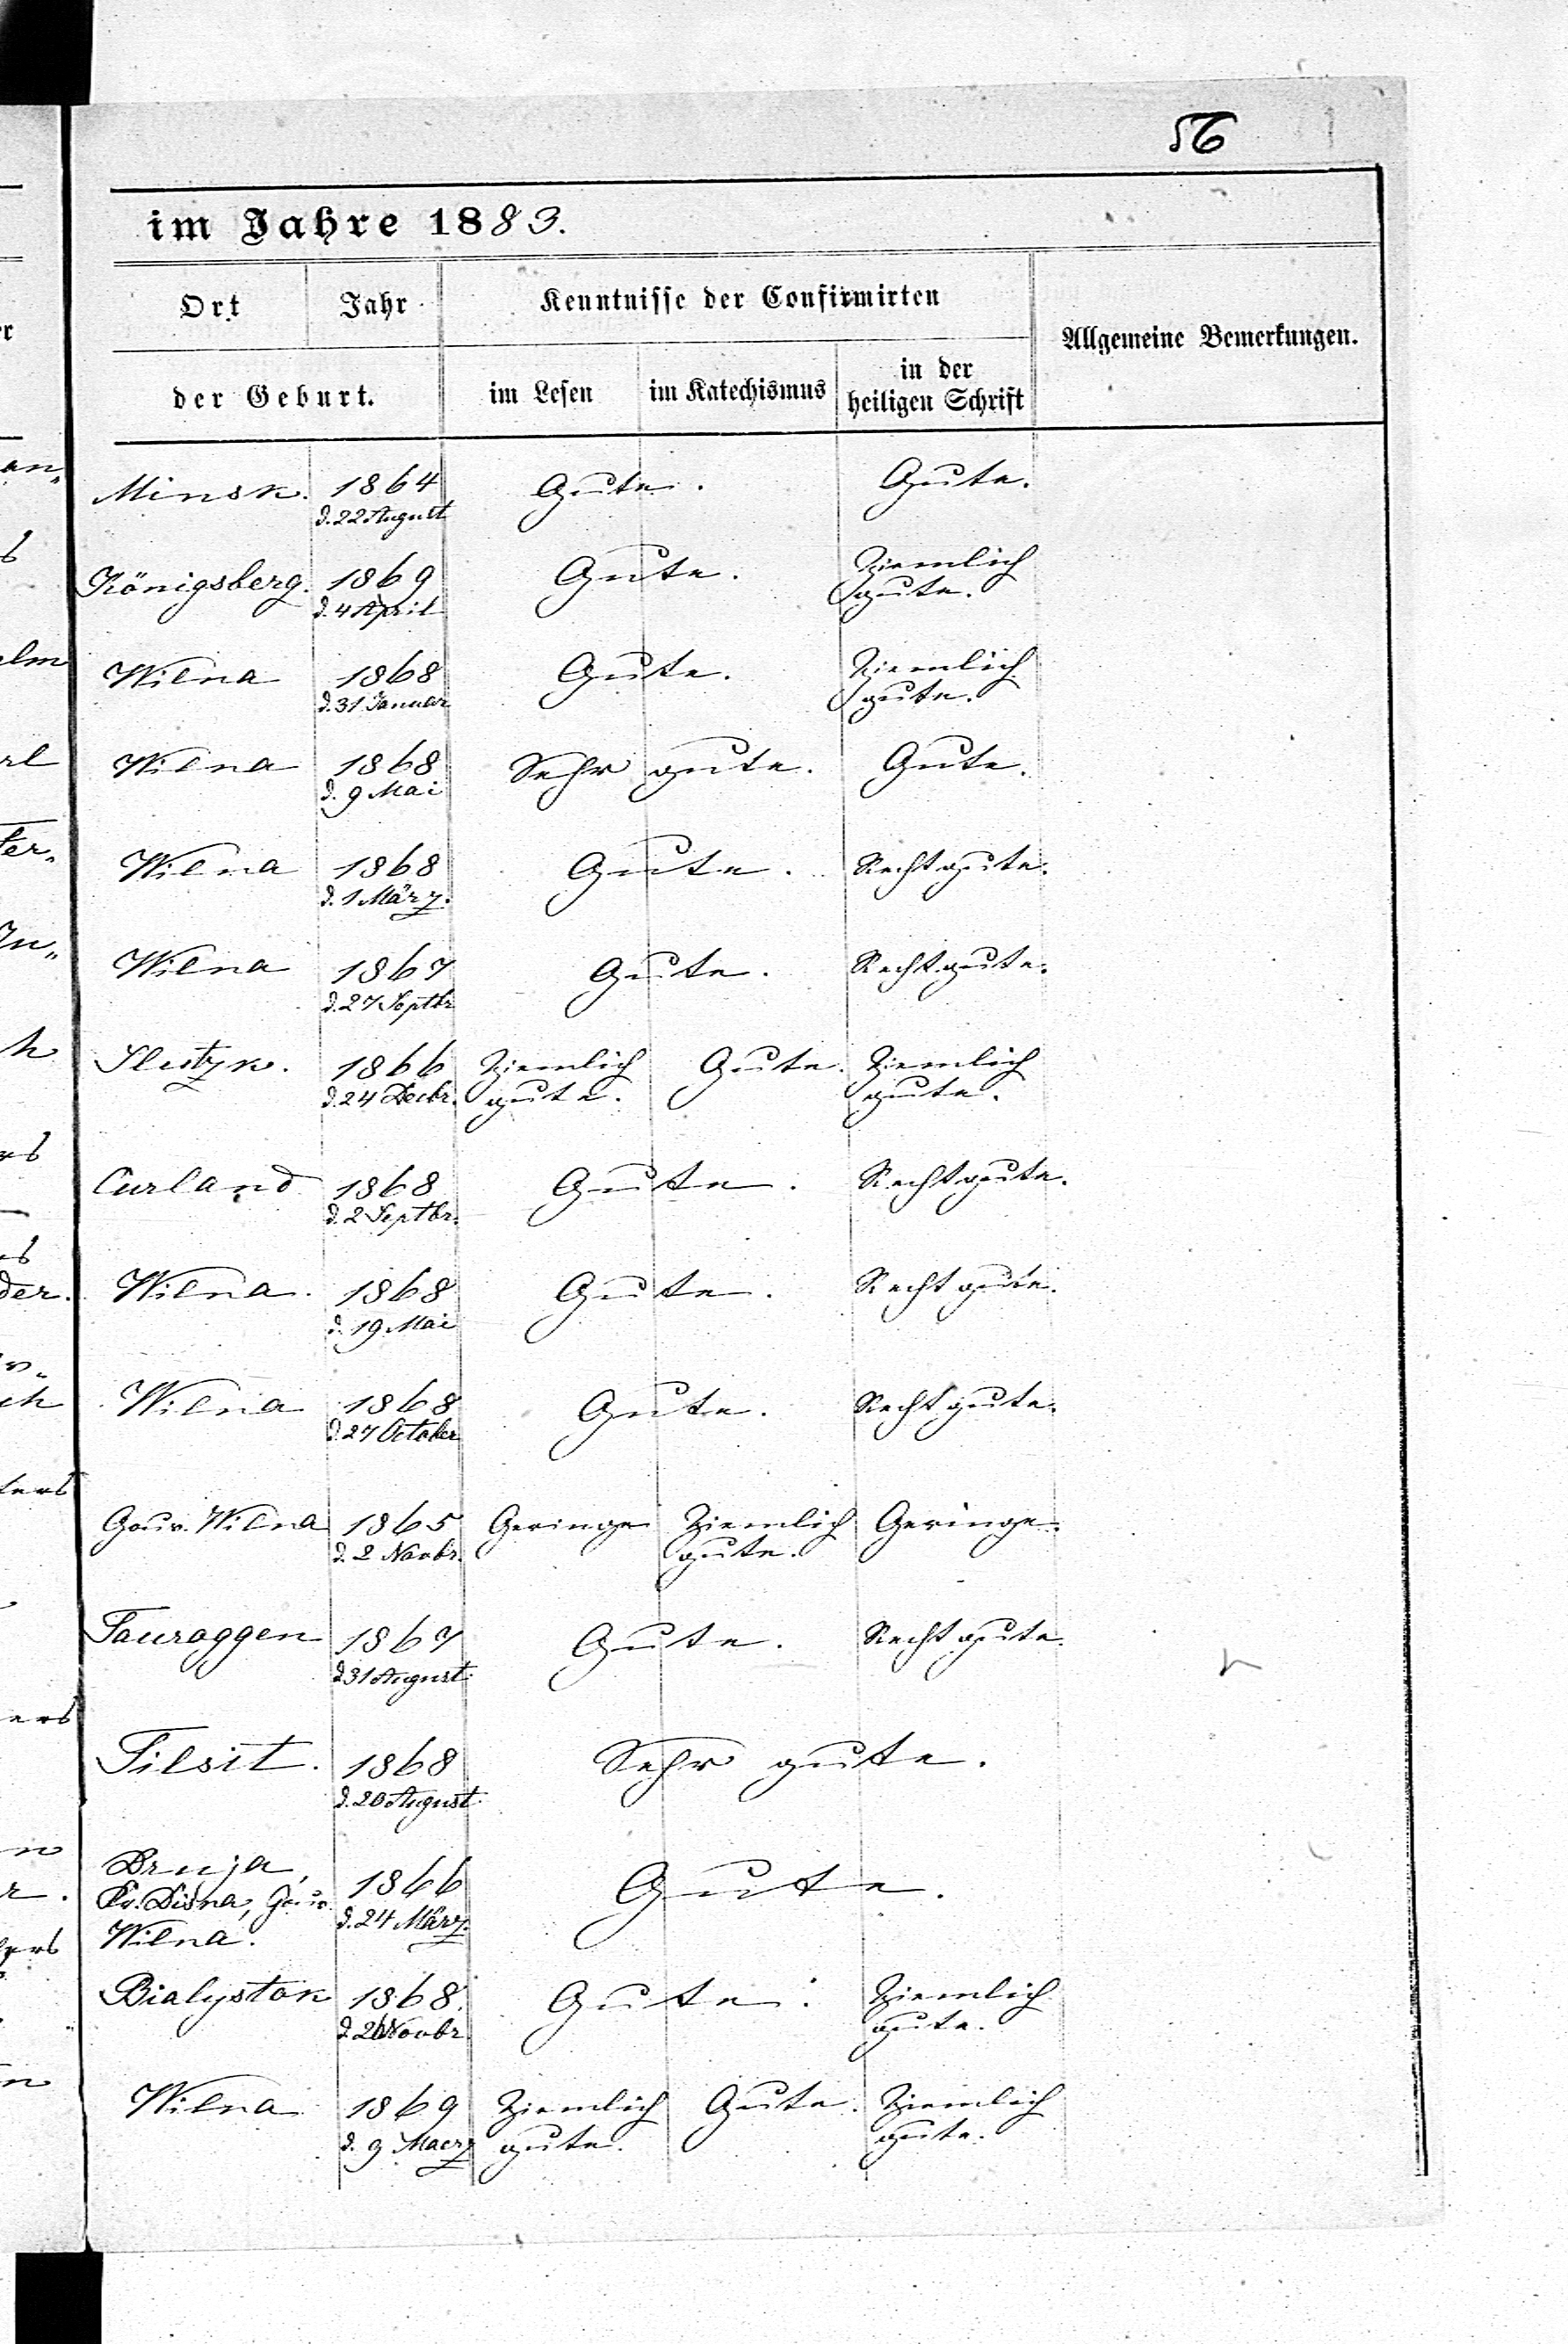 56
im Jahre 1883.
Ort Jahr Kenntnisse der Confirmirten Allgemeine Bemerkungen.
der Geburt. im Lesen im Katechismus in der heiligen Schrift
Minsk. 1864 Gute. Gute.
d. 22 August
Königsberg. 1869 Gute. Ziemlich
d. 4 April gute.
Wilna 1868 Gute. Ziemlich
d. 31 Januar gute.
Wilna 1868 Sehr gute. Gute.
d. 9 Mai
Wilna 1868 Gute. Recht gute.
d. 1 März.
Wilna 1867 Gute. Recht gute.
d. 27 Septbr
Slutzk. 1866 Ziemlich Gute. Ziemlich
d. 24 Decbr. gute. gute.
Curland 1868 Gute. Recht gute.
d. 2 Septbr.
Wilna. 1868 Gute. Recht gute.
d. 19 Mai
Wilna 1868 Gute. Recht gute.
d. 27 October
Gouv. Wilna 1865 Geringe Ziemlich Geringe.
d. 2 Novbr. gute.
Tauroggen 1867 Gute. Recht gute.
d. 31 August
Tilsit. 1868 Sehr gute.
d. 20 August
Druja, 1866 Gute.
Kr. Disna, Gouv. d. 24 März.
Wilna.
Bialystok 1868. Gute. Ziemlich
Novbr. gute.
Wilna 1869 Ziemlich Gute. Ziemlich
d. 9 Maerz gute. gute.